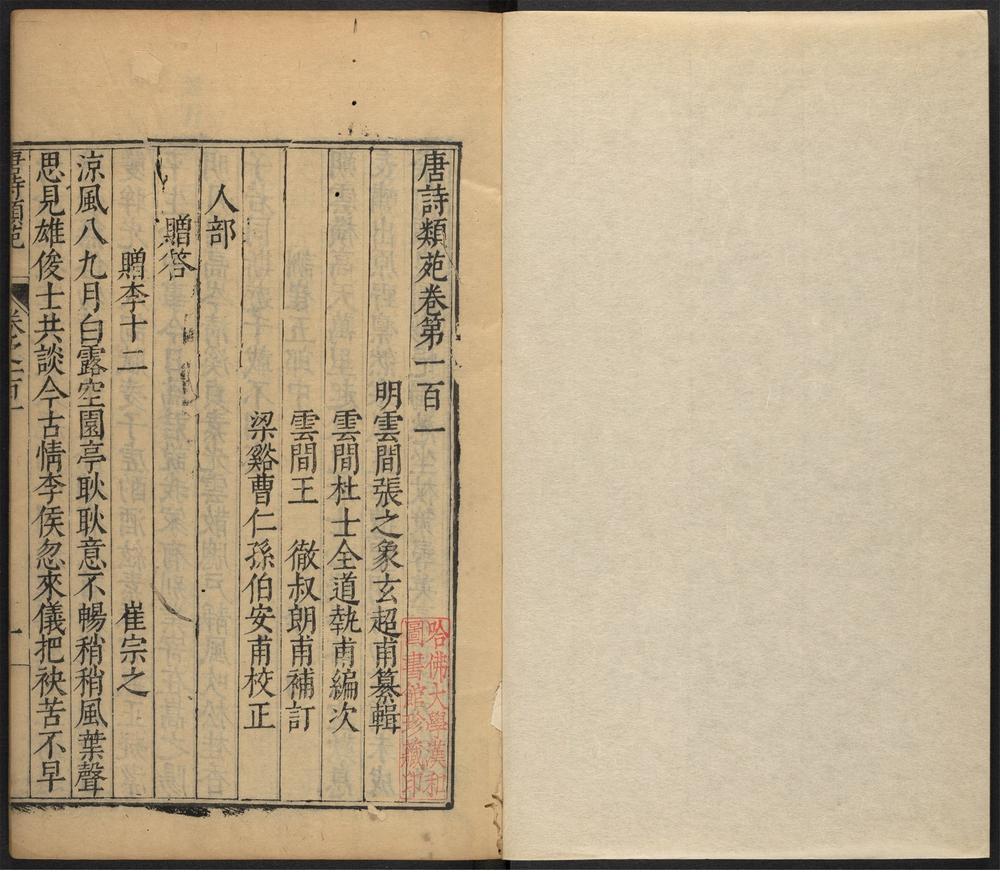 唐詩類苑卷第一百一
明雲間張之象玄超甫纂輯
雲間杜士全道執甫編次
雲間王　徹叔朗甫補訂
梁谿曹仁孫伯安甫校正
人部
贈答
贈李十二　崔宗之
涼風八九月白露空園亭耿耿意不暢稍稍風葉聲
思見雄俊士共談今古情李侯忽來儀把袂苦不早
唐詩類苑
卷之一百一
一
哈佛大學漢和
圖書館珍藏印